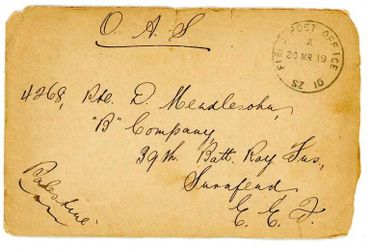 O. A. S
FIELD POST OFFICE
A
20 MR 19
SZ 16
4268, Pte. D. Mendlesohn,
"B" Company,
39th Batt. Roy. Fus,
Surafend
E. E. F.
Palestine.